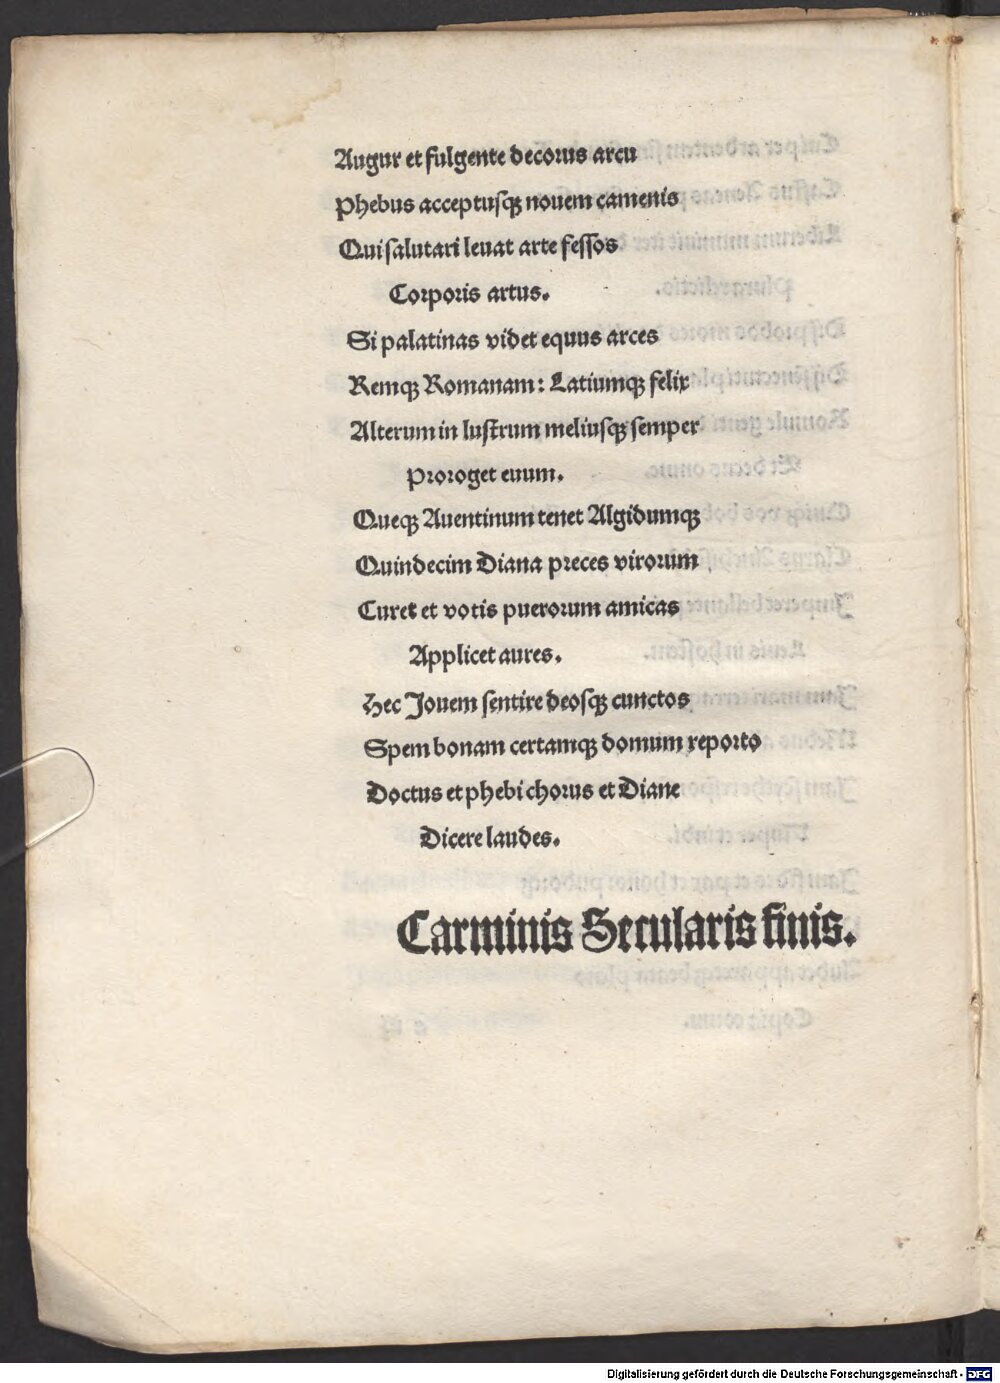 Augur et fulgente decorus arcu
Phebus acceptusqꝫ nouem camenis
Qui salutari leuat arte fessos
Corporis artus.
Si palatinas videt equus arces
Remqꝫ Romanam: Latiumqꝫ felix
Alterum in lustrum meliusqꝫ semper
Proroget euum.
Queqꝫ Auentinum tenet Algidumqꝫ
Quindecim Diana preces virorum
Curet et votis puerorum amicas
Applicet aures.
Hec Jouem sentire deosqꝫ cunctos
Spem bonam certamqꝫ domum reporto
Doctus et phebi chorus et Diane
Dicere laudes.
Carminis Secularis finis.
Digitalisierung gefördert durch die Deutsche Forschungsgemeinschaft - DFG